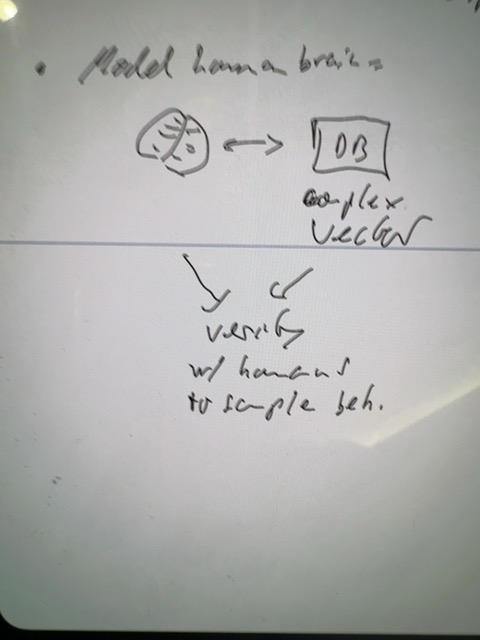 • Model human brain =
DB
complex
vector
verify
w/ humans
to sample beh.